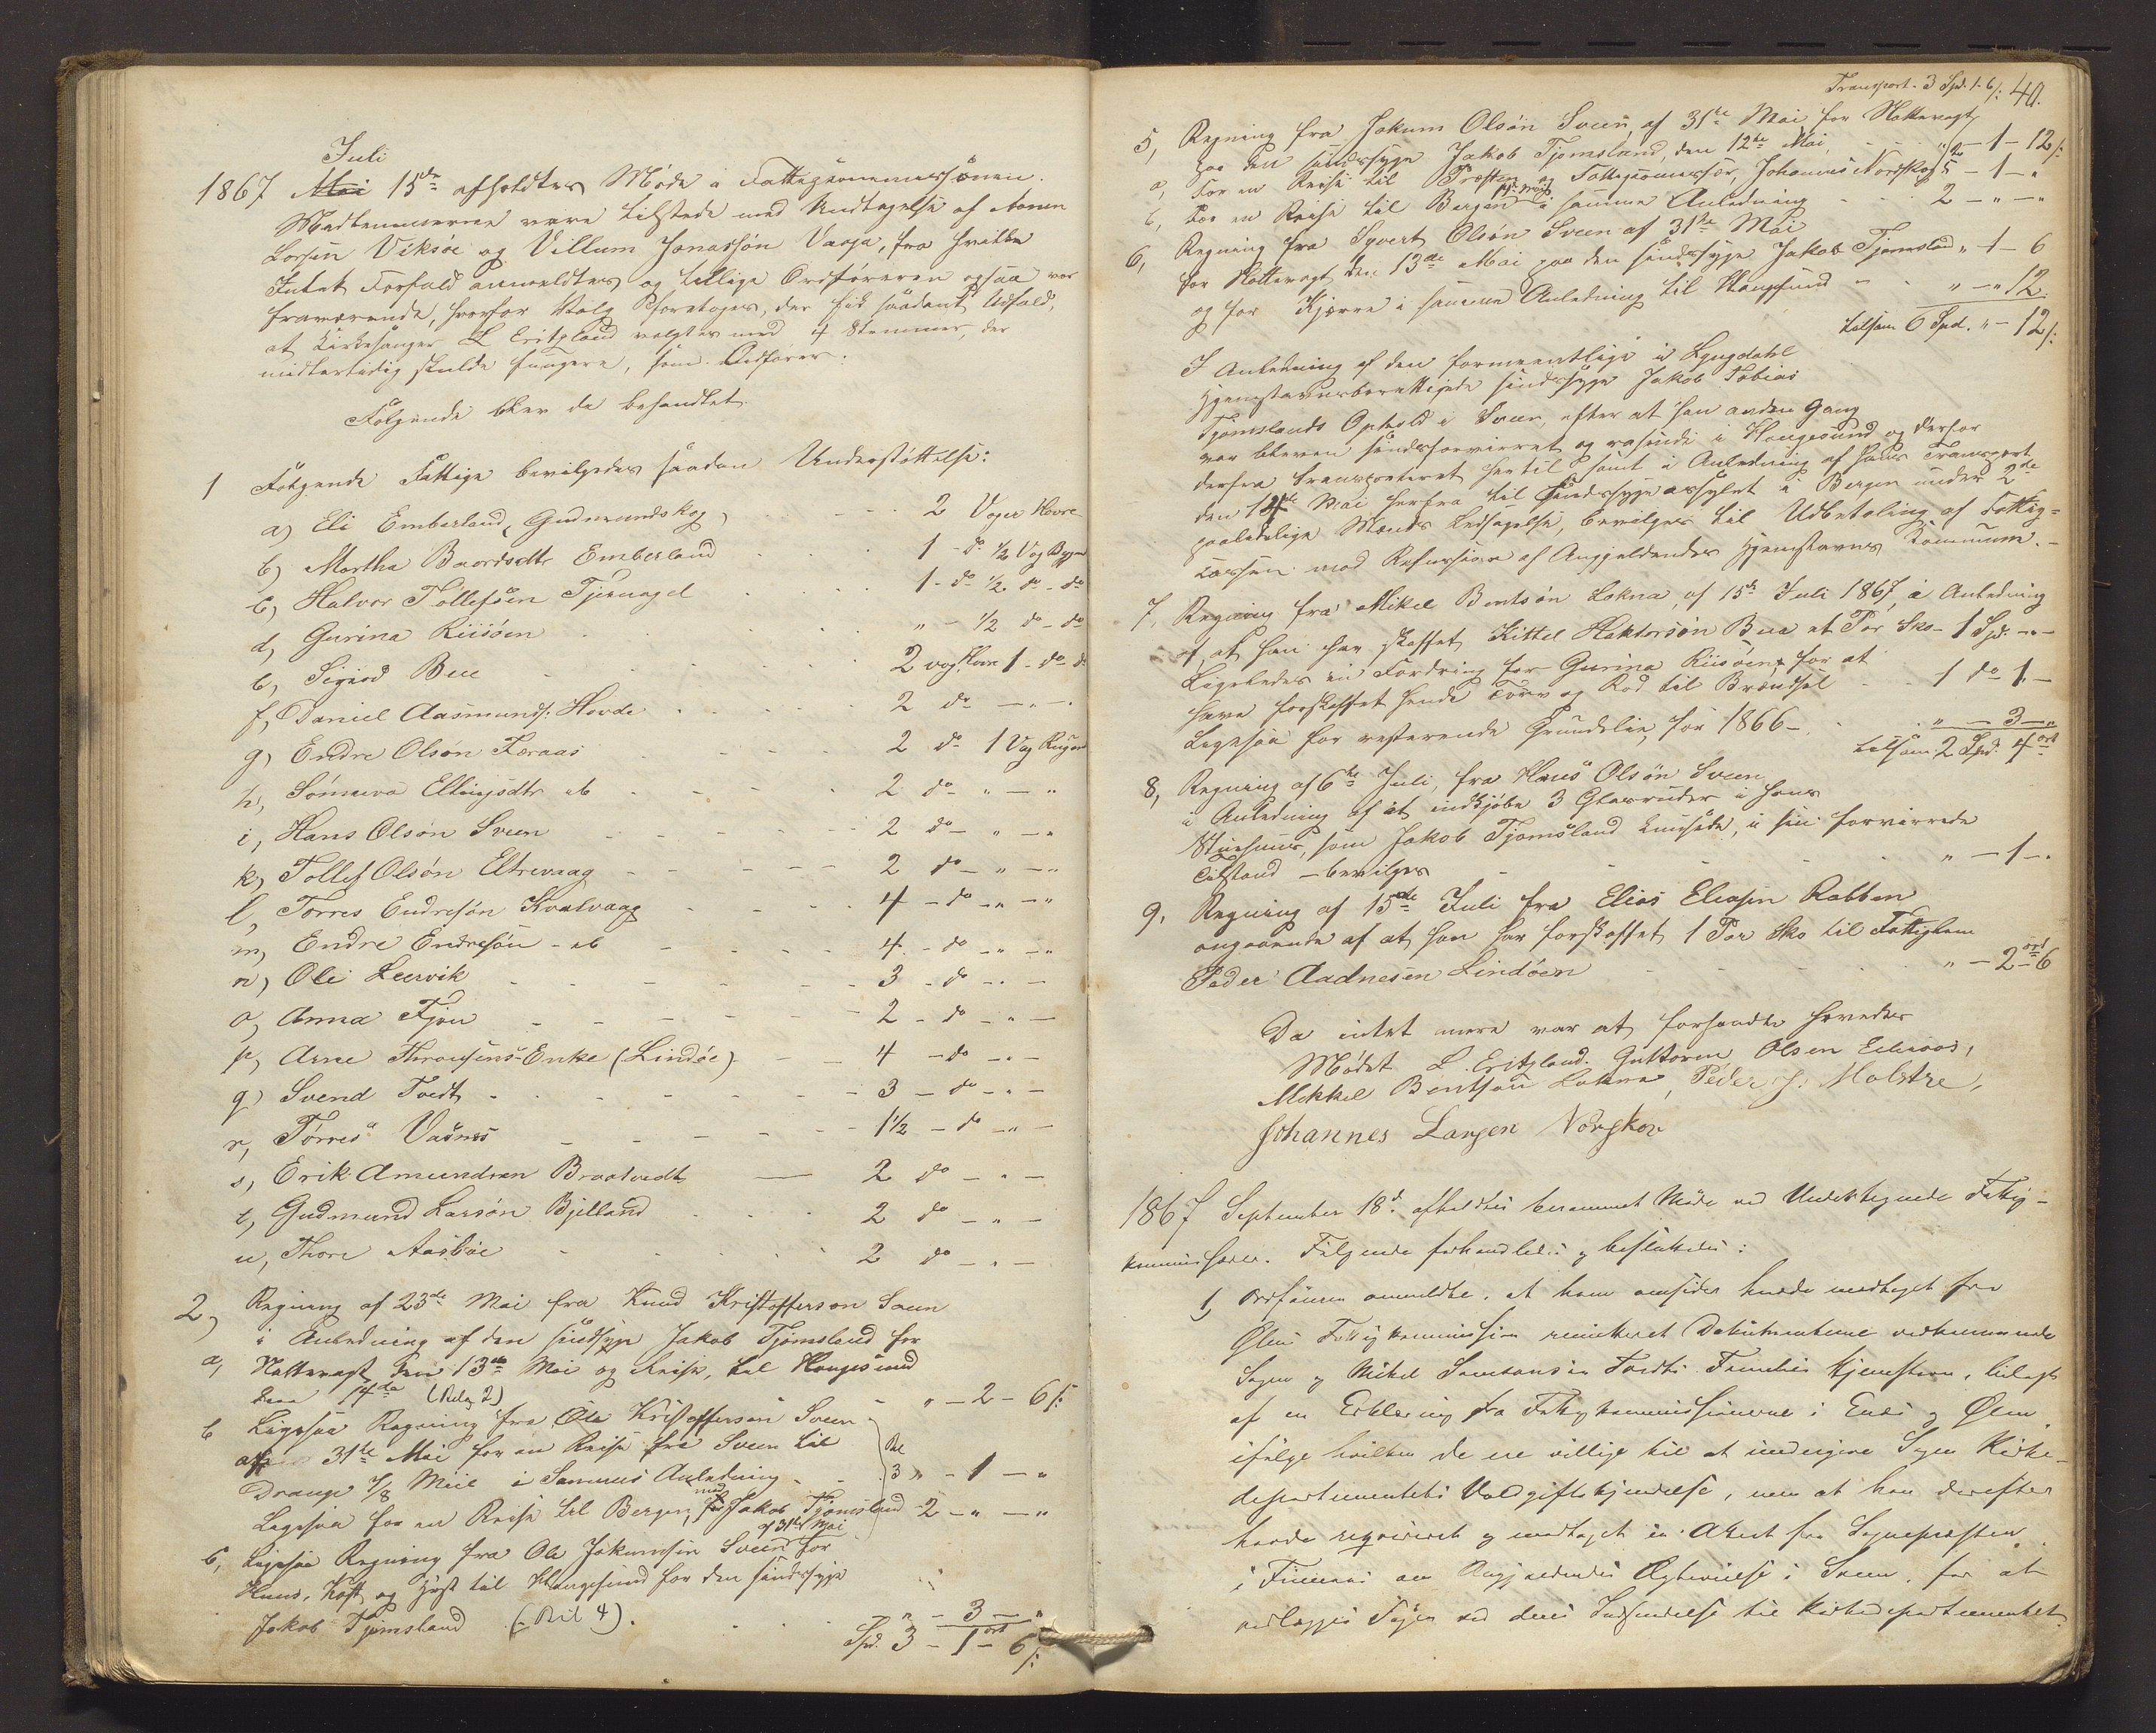 Juli
1867 Mai 15de afholdtes Møde i Fattigkommissionen.
Medlemmerne vare tilstede med Undtagelse af Aanen
Larsen Viksøe og Villum Jonassøn Vaaga, fra hvilke
Intet Forfald anmeldtes og tillige Ordføreren ogsaa var
fraværende, hvorfor Valg foretoges, der fik saadant Udfald,
at Kirkesanger L Eritzland valgtes med 4 Stemmer, der
midlertidig skulde fungere, som Ordfører.
Følgende blev da behandlet
1 Følgende Fattige bevilgedes saadan Understøttelse:
a) Eli Emberland, Gudmundskog, 2 Voger Havre
b) Martha Baardsdtr Emberland 1 - do 1/2 Vog Byg
c, Halvor Tollefsøen Tjernagel 1 - do 1/2 do - do
d, Gurina Riisøen " - 1/2 do - do
e, Sigvod Bue 2 vog Havre 1 - do do
f, Daniel Aasmunds. Hovde 2 do - " -
g) Endre Olsøn Føraas 2 do 1 Vog Rug
h, Sønneva Ellingsdtr ib 2 do - " - "
i, Hans Olsøn Sveen 2 do - " - "
k, Tollef Olsøn Eltrevaag 2 do - " - "
l, Torres Endresøn Kvalvaag 4 - do - " - "
m, Endre Endresøn - ib 4 - do - " - "
n) Ole Leervik 3 - do - " -
o, Anna Fjon 2 - do - " -
p, Arne Thronsens Enke (Lindøe) 4 - do - " -
q) Svend Tvedt 3 - do - " -
r, Tørres Vasnes 1 1/2 - do - " -
s, Erik Amundsen Braatvedt 2 do - " -
t, Gudmund Larsøn Bjelland 2 do - " -
u, Thore Aasbøe 2 do - " -
2, Regning af 23de Mai fra Knud Kristofferson Sveen
i Anledning af den sindsyge Jakob Tjømsland for
a, Nattevagt den 13de Mai og Reise til Haugesund
den 14de (Bilag 2) " - 2 - 6 ß
b Ligesaa Regning fra Ole Kristofferson Sveen
af 31te Mai for en Reise fra Sveen til
Drange 7/8 Miil i Sammes Anledning Bil 3 " - 1 - "
Ligesaa for en Reise til Bergen med Jakob Tjømsland 2 - " - "
af 31te Mai
c, Ligesaa Regning fra Ole Jokumsøn Sveen for
Huus, Kost og Hest til Haugesund for den sindssyge
Jakob Tjømsland (Bil 4). " - 3 - "
Spd. 3 - 1 ort - 6 ß
Transport. 3 Spd. 1. 6 ß 40.
5, Regning fra Jokum Olsøn Sveen, af 31te Mai for Nattevagt
paa den sindssyge Jakob Tjømsland, den 12te Mai, " - 1 - 12 ß
a, for en Reise til Præsten og Fattigkommissær, Johannes Norskog - 1 - "
b, For en Reise til Bergen i samme Anledning 2 - " - "
6, Regning fra Syvert Olsøn Sveen af 31te Mai
for Nattevagt den 13de Mai paa den sindssyge Jakob Tjømsland " - 1 - 6
og for Kjørre i samme Anledning til Haugesund " - " 12.
tilsam 6 Spd. " - 12 ß
I Anledning af den formeentlige i Lyngdahl
Hjemstavnsberettigede sindssyge Jakob Tobias
Tjømslands Ophold i Sveen, efter at han anden Gang
var bleven sindsforvirret og rasende i Haugesund og derfor
derfra transporteret hertil samt i Anledning af hans Transport
den 14de Mai herfra til Sindssygeasylet i Bergen under 2de
paalidelige Mænds Ledsagelse, bevilges til Udbetaling af Fattig=
kassen mod Refusion af Angjældendes Hjemstavns Kommune. -
7, Regning fra Mikel Bentsøn Lokna, af 15de Juli 1867, i Anledning
af, at han har skaffet Kittel Haktorsøn Bua et Par Sko - 1 Spd. - " -
Ligeledes en Fordring for Gurina Riisøen for at
have forskaffet hende Torv og Rod til Brændsel 1 do 1 -
Ligesaa for resterende Grundleie for 1866 - " - 3 - "
tilsam. 2 Spd. 4 ort
8, Regning af 6te Juli, fra Hans Olsøn Sveen
i Anledning af at indkjøbe 3 Glasruder i hans
Stuehuus, som Jakob Tjomsland knusede, i sin forvirrede
Tilstand - bevilges " - 1 - "
9, Regning af 15de Juli fra Elias Eliasen Rabben
angaaende af at han har forskaffet 1 Par Sko til Fattiglem
Peder Aadnesen Lindøen " - 2 ort - 6
Da intet mere var at forhandle hævedes
Mødet L. Eritzland. Guttorm Olsen Ekeraas,
Mikkel Bentsøn Lokna, Peder J. Molstre,
Johannes Larsen Norskov
1867 September 18d. afholdtes berammet Møde ved Undertegnede Fattig-
kommission. Følgende forhandledes og besluttedes:
1, Ordføreren anmeldte, at han omsider havde modtaget fra
Ølens Fattigkommission remitteret Dokumenterne vedkommende
Sagen og Mikel Tvedts Families Hjemstavn, bilagt
af en Erklæring fra Fattigkommissionerne i Enes og Ølen
ifølge hvilken de ere villige til at undergive Sagen Kirke-
departementets Voldgiftskjendelse, men at han derefter
havde reqvireret og modtaget en Attest fra Sognepræsten
i Finnaas om Angjældendes Ægtevielse i Sveen, for at
vedlægges Sagen ved dens Indsendelse til Kirkedepartementet.